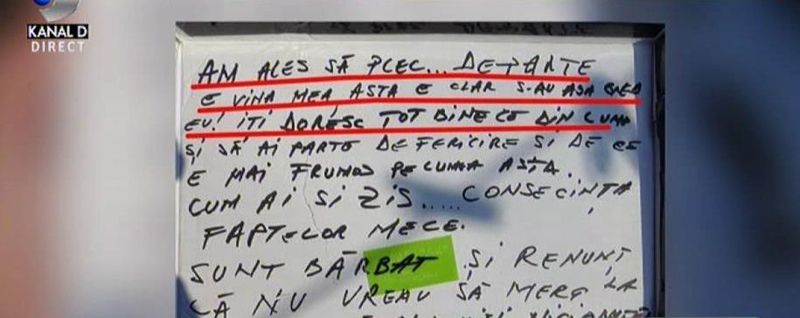 KANAL D
DIRECT
AM ALES SĂ PLEC... DEPARTE
E VINA MEA ASTA E CLAR S-AU AȘA CRED
EU! ITI DORESC TOT BINE CE DIN LUME
ȘI SĂ AI PARTE DE FERICIRE SI DE CE
E MAI FRUMOS PE LUMEA ASTA.
CUM AI SI ZIS.... CONSECINȚA
FAPTELOR MELE.
SUNT BĂRBAT ȘI RENUNȚ
CĂ NU VREAU SĂ MERG LA